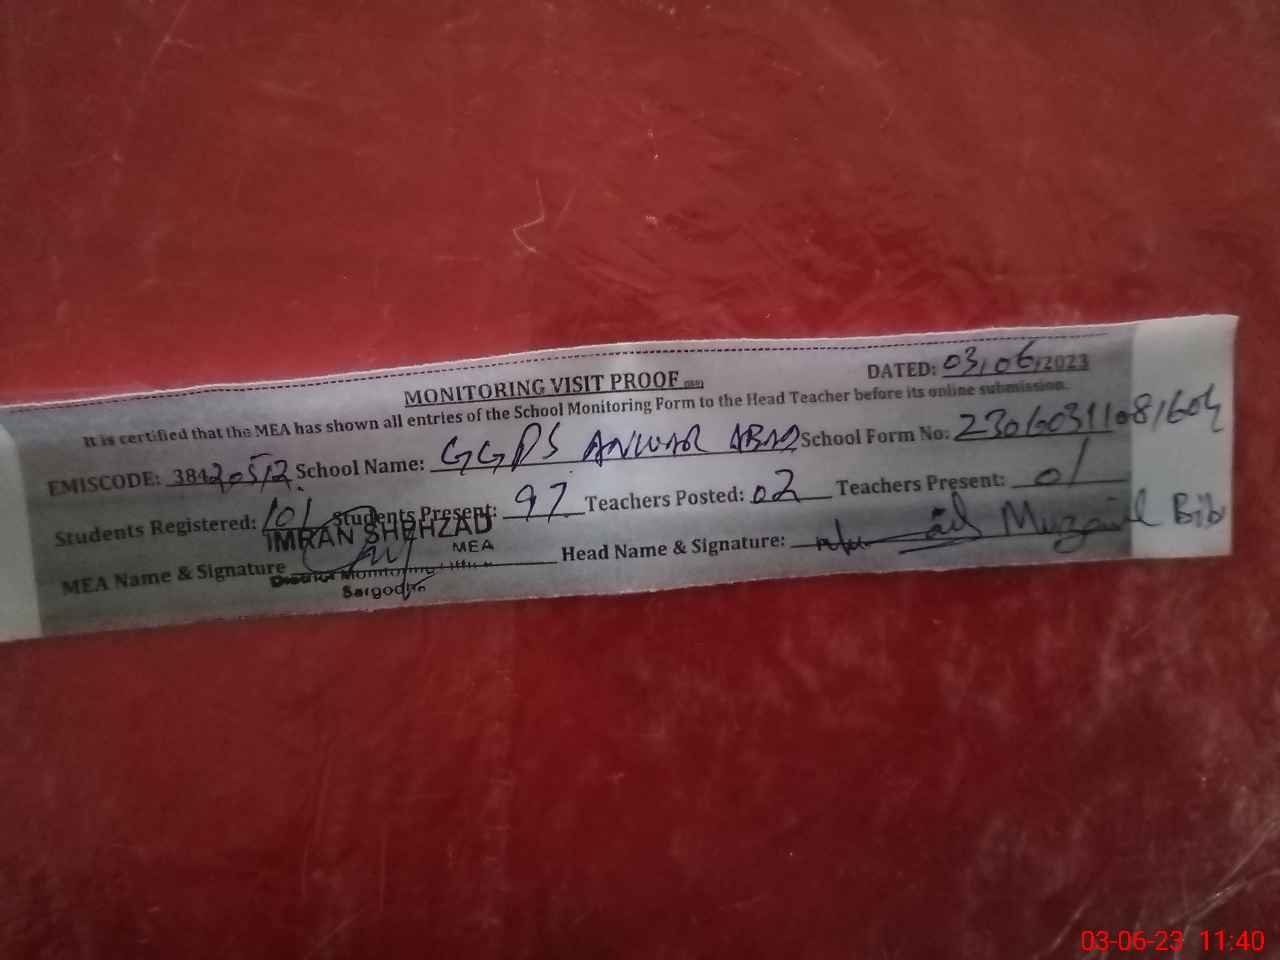 MONITORING VISIT PROOF
DATED: 03/06/2023
It is certified that the MEA has shown all entries of the School Monitoring Form to the Head Teacher before its online submission.
EMISCODE: 38420512 School Name: GGPS ANWAR ABAD School Form No: 23060311081604
Students Registered: 101 Students Present: 97 Teachers Posted: 02 Teachers Present: 01
MEA Name & Signature Head Name & Signature: Muzamil Bibi
IMRAN SHEHZAD
MEA
District Monitoring Office
Sargodha
03-06-23 11:40